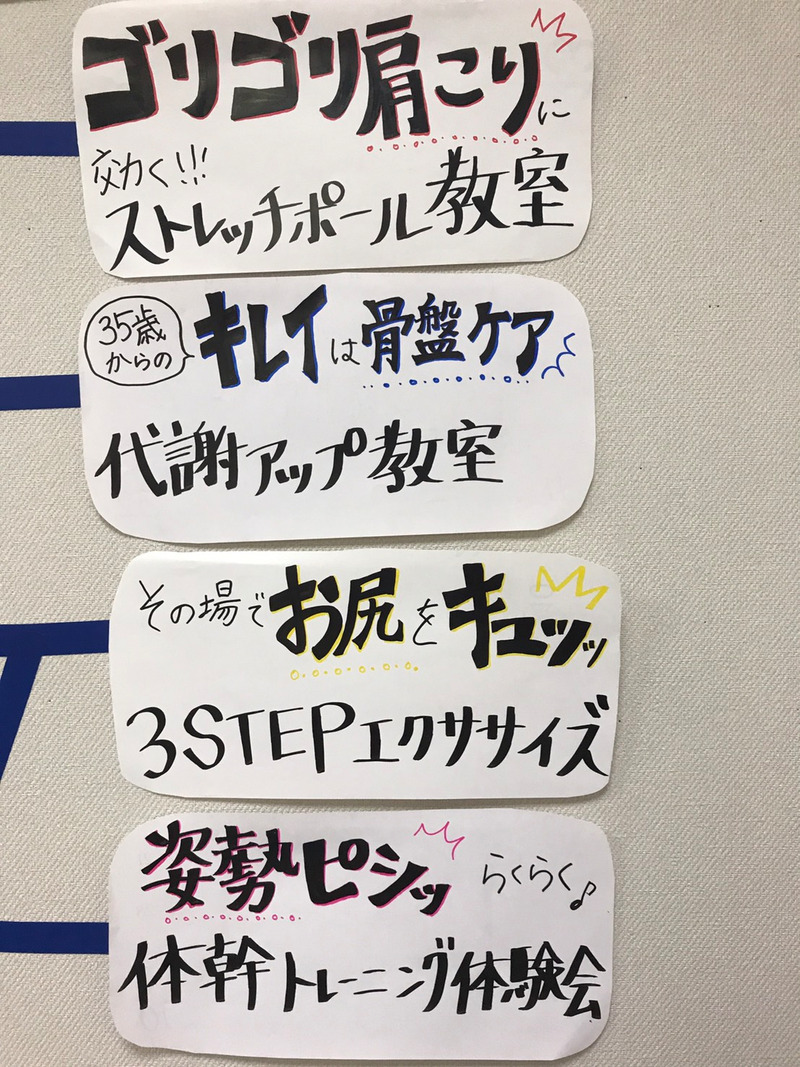 ゴリゴリ肩こりに
効く!!!
ストレッチポール教室
35歳
からの
キレイは骨盤ケア
代謝アップ教室
その場でお尻をキュッッ
3STEPエクササイズ
姿勢ピシッ らくらく♪
体幹トレーニング体験会